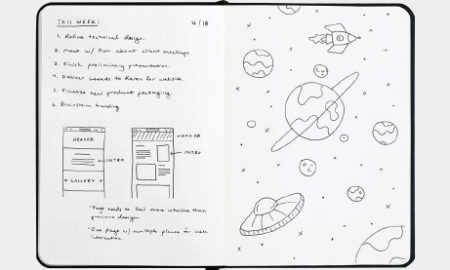 THIS WEEK: 4/18
1. Refine technical design.
2. Meet w/ Dan about client meetings.
3. Finish preliminary presentation.
4. Deliver assets to Karen for website.
5. Finalize new product packaging.
6. Brainstorm branding
HEADER
INTRO
GALLERY
HEADER
INTRO
*Page needs to feel more intuitive than
previous design.
*One Page w/ multiple places for user
interaction.